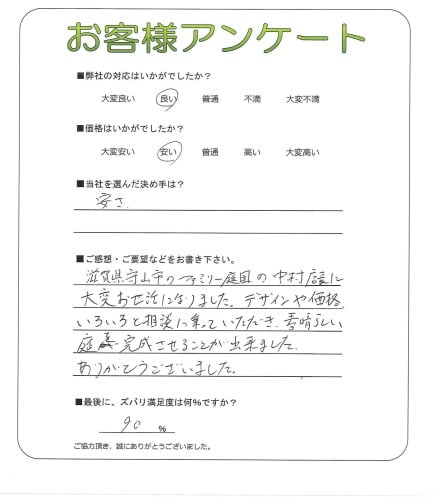 お客様アンケート
■弊社の対応はいかがでしたか？
大変良い 良い 普通 不満 大変不満
■価格はいかがでしたか？
大変安い 安い 普通 高い 大変高い
■当社を選んだ決め手は？
安さ.
■ご感想・ご要望などをお書き下さい。
滋賀県守山市のファミリー庭園の中村店長に
大変お世話になりました。デザインや価格
いろいろと相談に乗っていただき、素晴らしい
庭を完成させることが出来ました.
ありがとうございました.
■最後に、ズバリ満足度は何％ですか？
90 %
ご協力頂き、誠にありがとうございました。